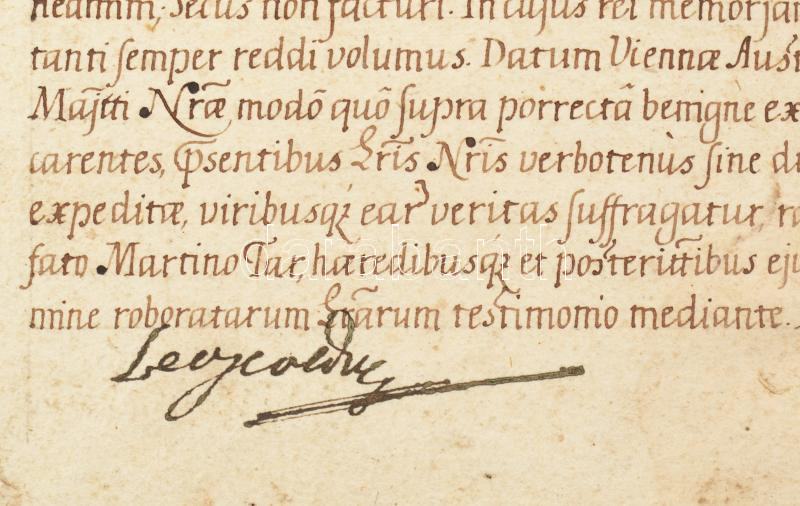 neamini, Secus non facturi. In cujus rei memoriam
tanti semper reddi volumus. Datum Viennæ Aust
Maj̃tti Nr̃æ modõ quõ supra porrectã benigne ex
carentes, P̃sentibus Lr̃is Nr̃is verbotenùs sine
expeditæ, viribusqȝ ear veritas suffragatur,
fato Martino Tar, hæredibusqȝ et posterit̃tibus ej
mine roboratarum Lr̃arum testimonio mediante.
Leopoldus
darabanth